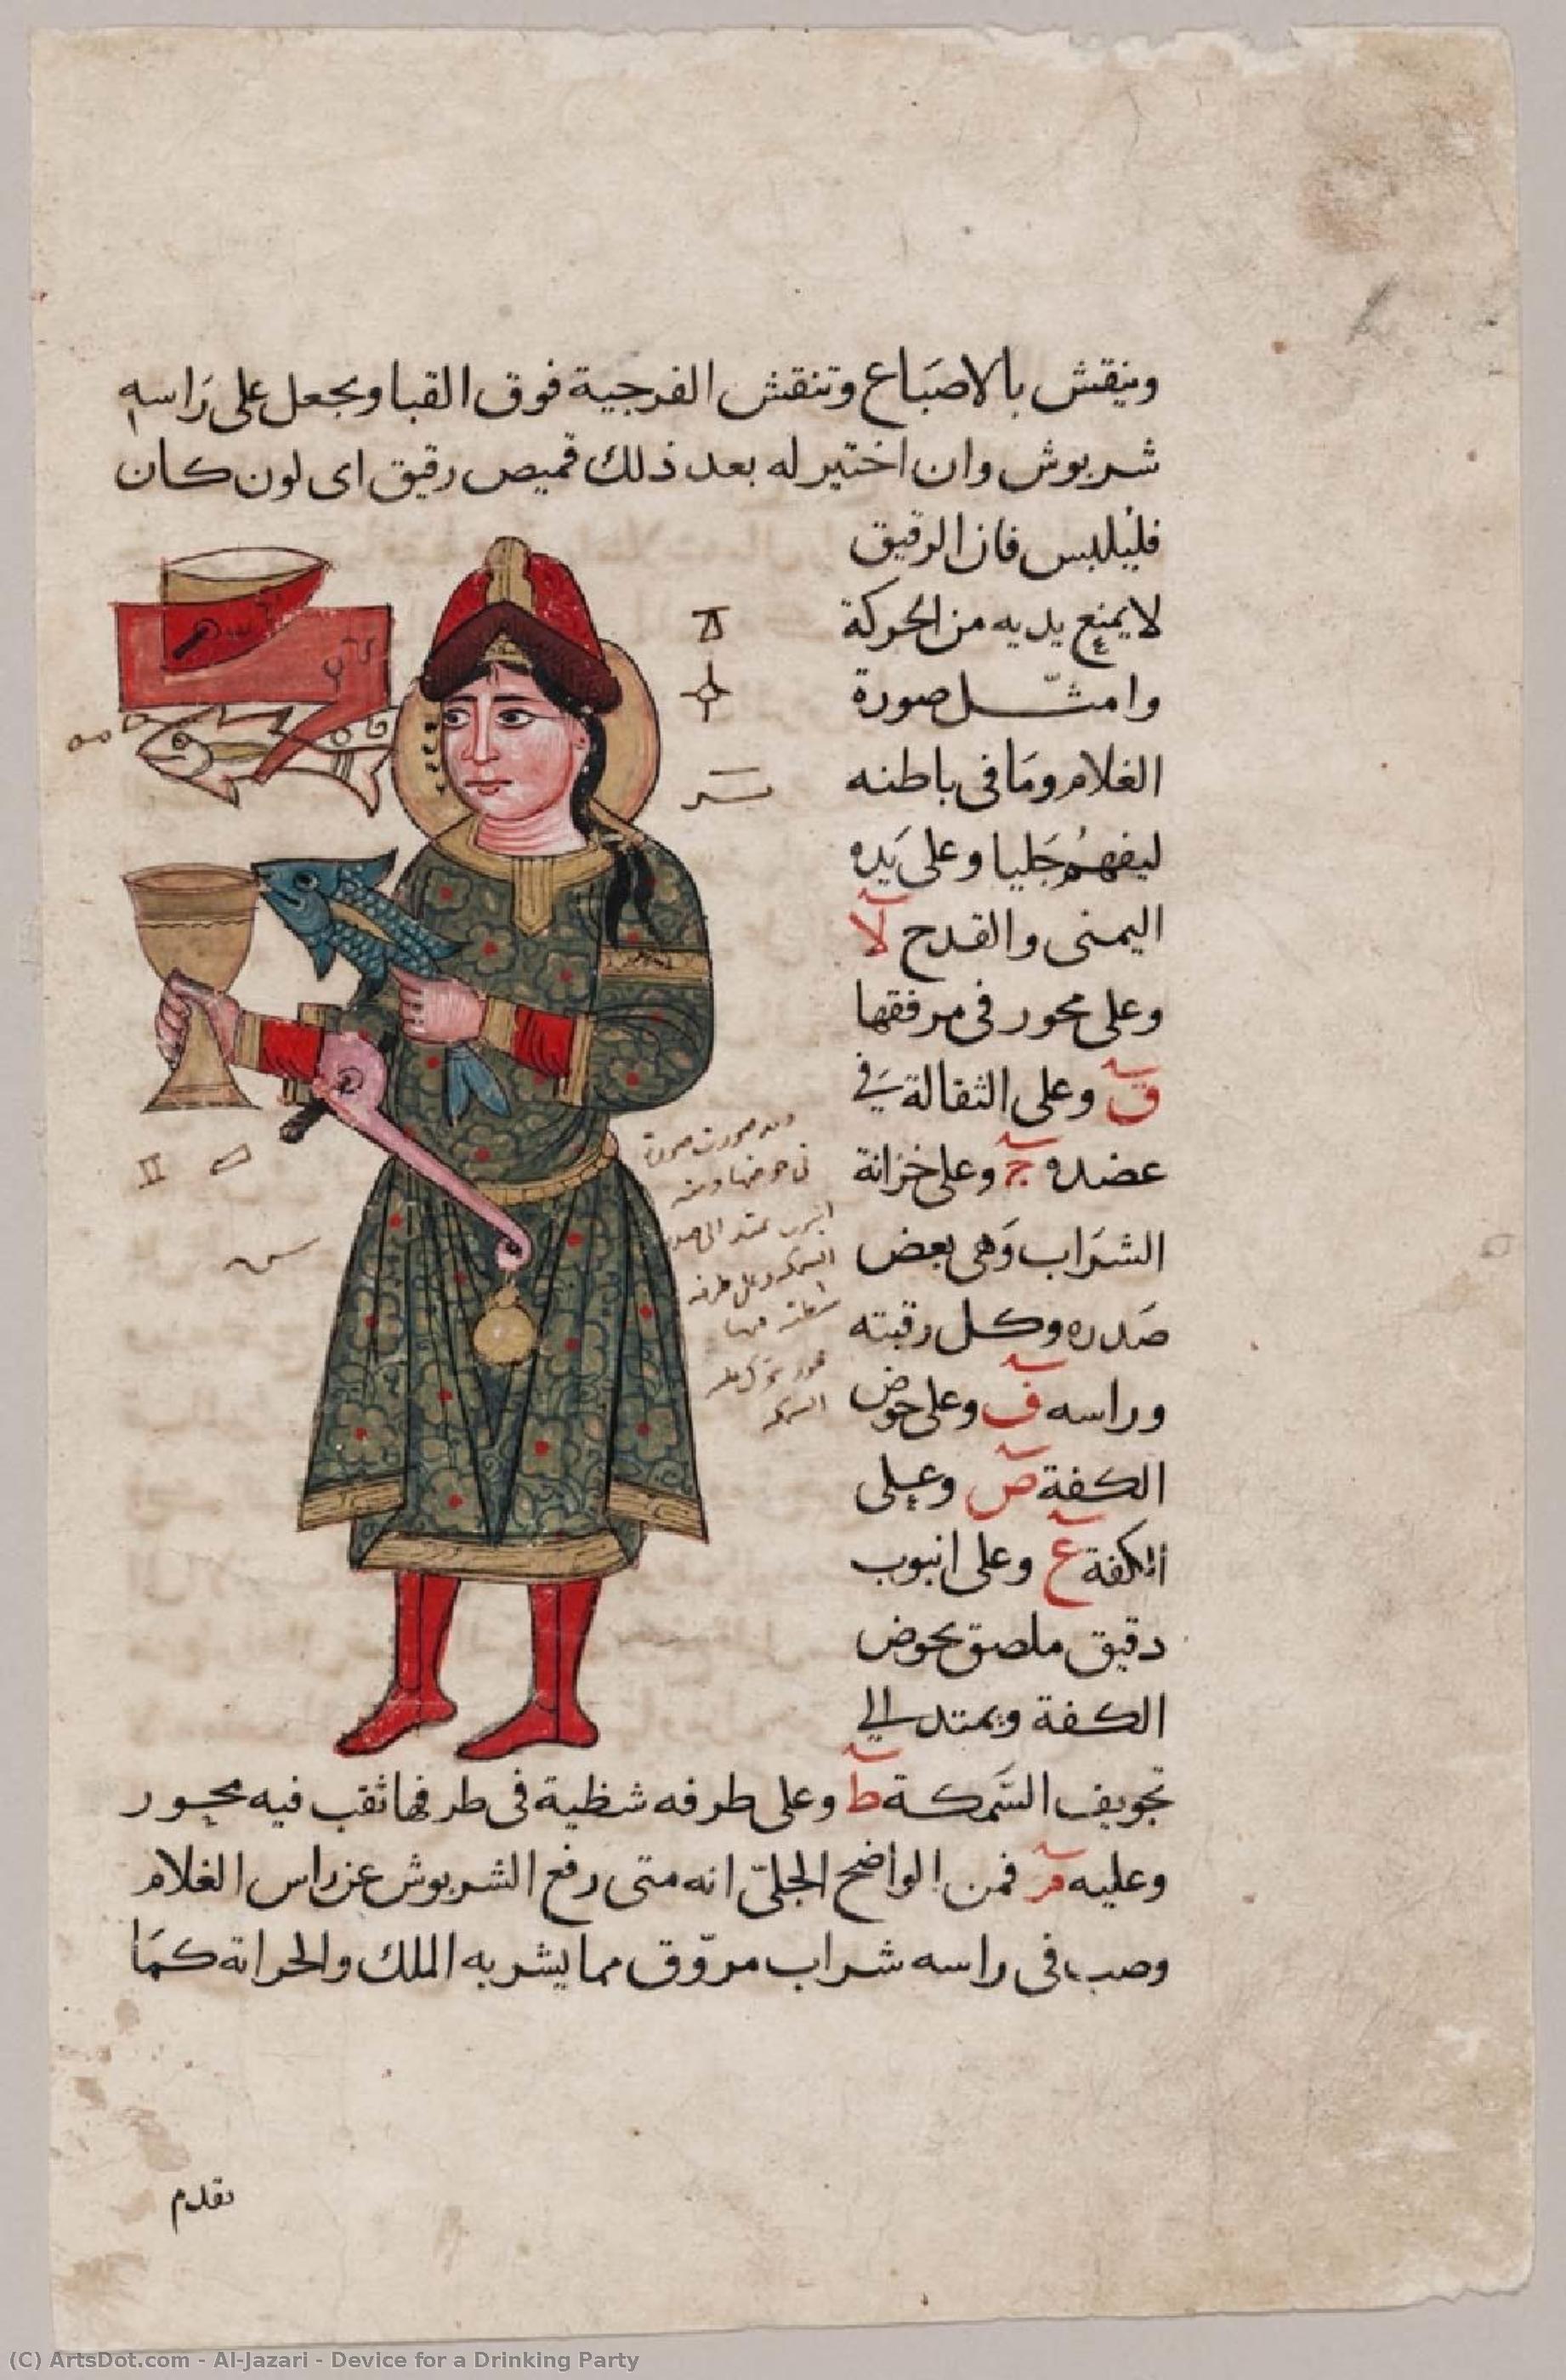 وينقش بالاصَباع وتنقش الفرجية فوق القبا ويجعل على رَاسه
شربوش وان اختير له بعد ذلك قميص رقيق اى لون كان
فليُلبس فان الرقيق
لا يمنع يديه من الحركة
وامثّل صورة
الغلام ومَا فى باطنه
ليفهمُ جَليا وعلى يَده
اليمنى والقدح لا
وعلى محور فى مرفقها
ق وعلى الثقالة في
عضده ج وعلى خزانة
الشرَاب وَهى بعض
صَدره وكل رقبته
وراسه ف وعلى حوض
الكفة ص وعلى
الكفة ع وعلى انبوب
دقيق ملصق بحوض
الكفة ويمتد الي
تجويف السَّمكة ط وعلى طرفه شظية فى طرفها ثقب فيه محور
وعليه م فمن الواضح الجلىّ انه متى رفع الشربوش عن راس الغلام
وصب فى راسه شراب مروّق مما يشربه الملك والحرانة كمَا
تقدم
(C) ArtsDot.com - Al-Jazari - Device for a Drinking Party